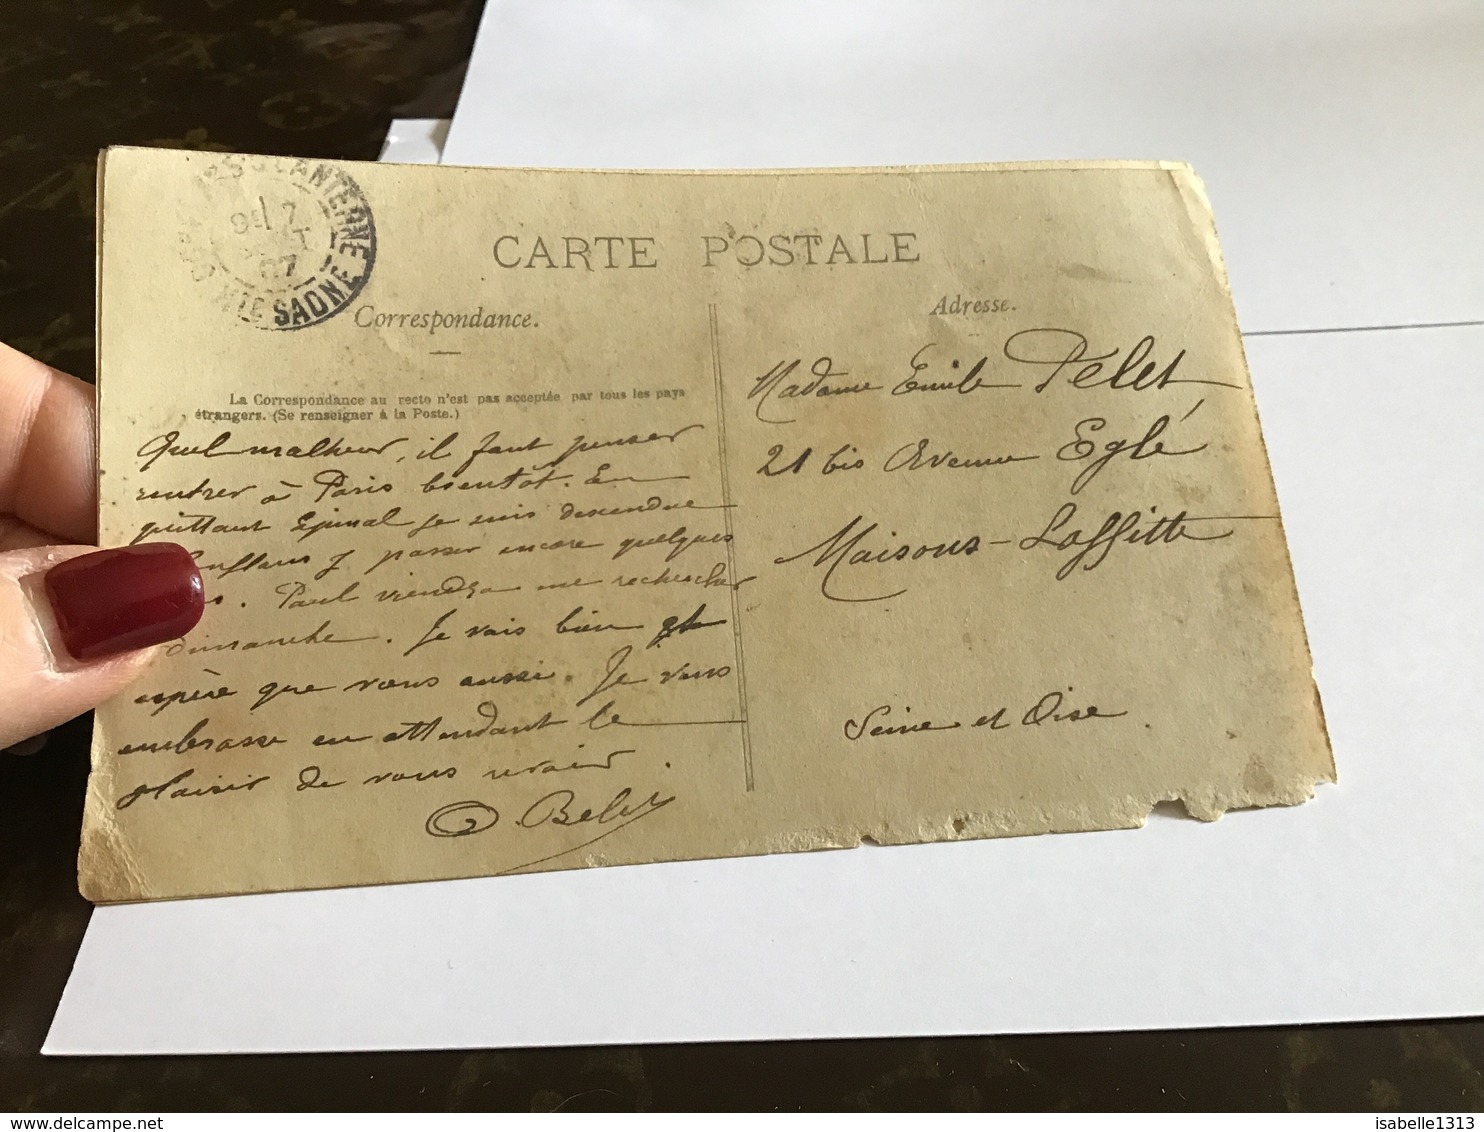 LANTERNE
HTE SAONE
07
CARTE POSTALE
Correspondance.
Adresse.
La Correspondance au recto n'est pas acceptée par tous les pays
étrangers. (Se renseigner à la Poste.)
Quel malheur, il faut penser
rentrer à Paris bientôt. En
quittant Epinal je suis descendue
y passer encore quelques
Paul viendra me rechercher
dimanche. Je vais bien et
espère que vous aussi. Je vous
embrasse en attendant le
plaisir de vous revoir.
Madame Emile Pelet
21 bis Avenue Eglé
Maisons-Laffitte
Seine et Oise.
isabelle1313